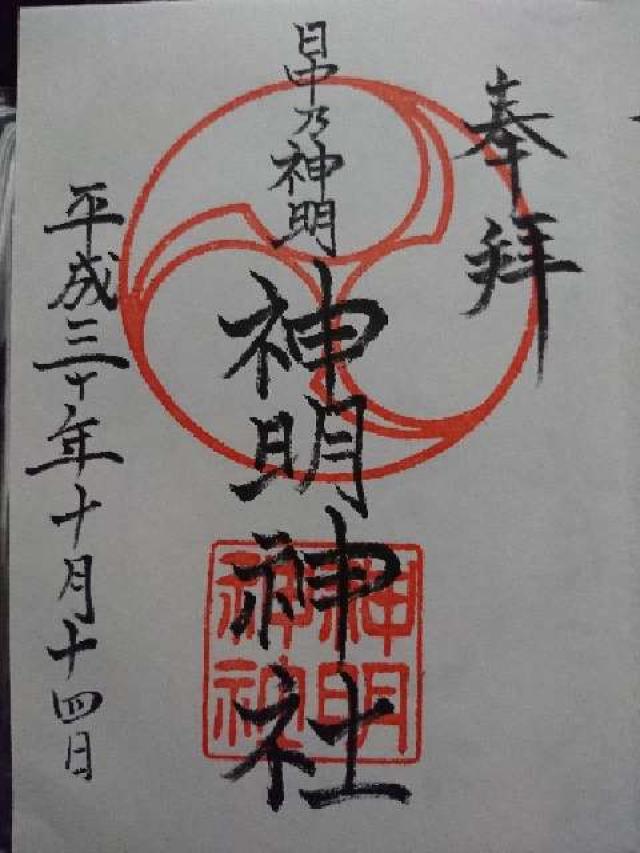 奉拝
日中乃神明
神明神社
神明神社
平成三十年十月十四日